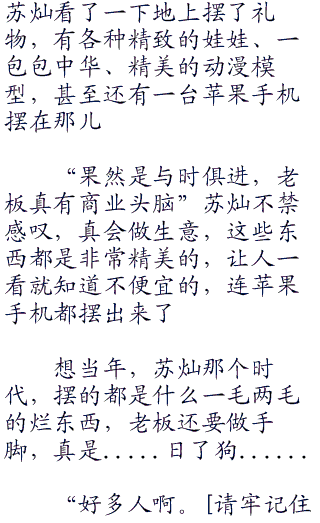 苏灿看了一下地上摆了礼
物，有各种精致的娃娃、一
包包中华、精美的动漫模
型，甚至还有一台苹果手机
摆在那儿
“果然是与时俱进，老
板真有商业头脑”苏灿不禁
感叹，真会做生意，这些东
西都是非常精美的，让人一
看就知道不便宜的，连苹果
手机都摆出来了
想当年，苏灿那个时
代，摆的都是什么一毛两毛
的烂东西，老板还要做手
脚，真是.....日了狗......
“好多人啊。[请牢记住